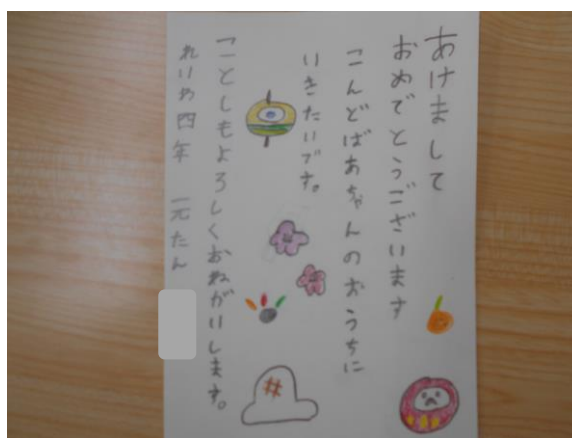 あけまして
おめでとうございます
こんどばあちゃんのおうちに
いきたいです。
ことしもよろしくおねがいします。
れいわ四年 元たん